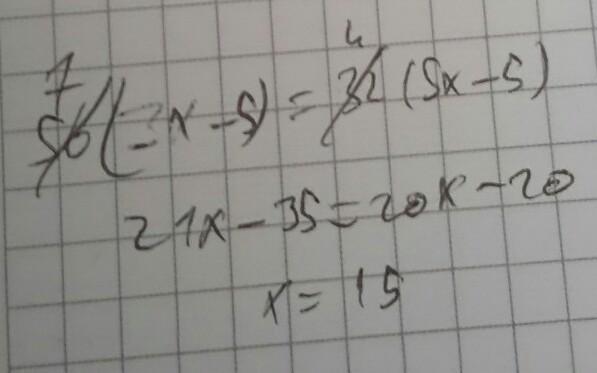 7 4
56(3x-5) = 32(5x-5)
21x - 35 = 20x - 20
x = 15